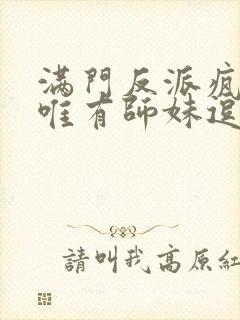 滿門反派瘋
唯有師妹逗
請叫我高原紅